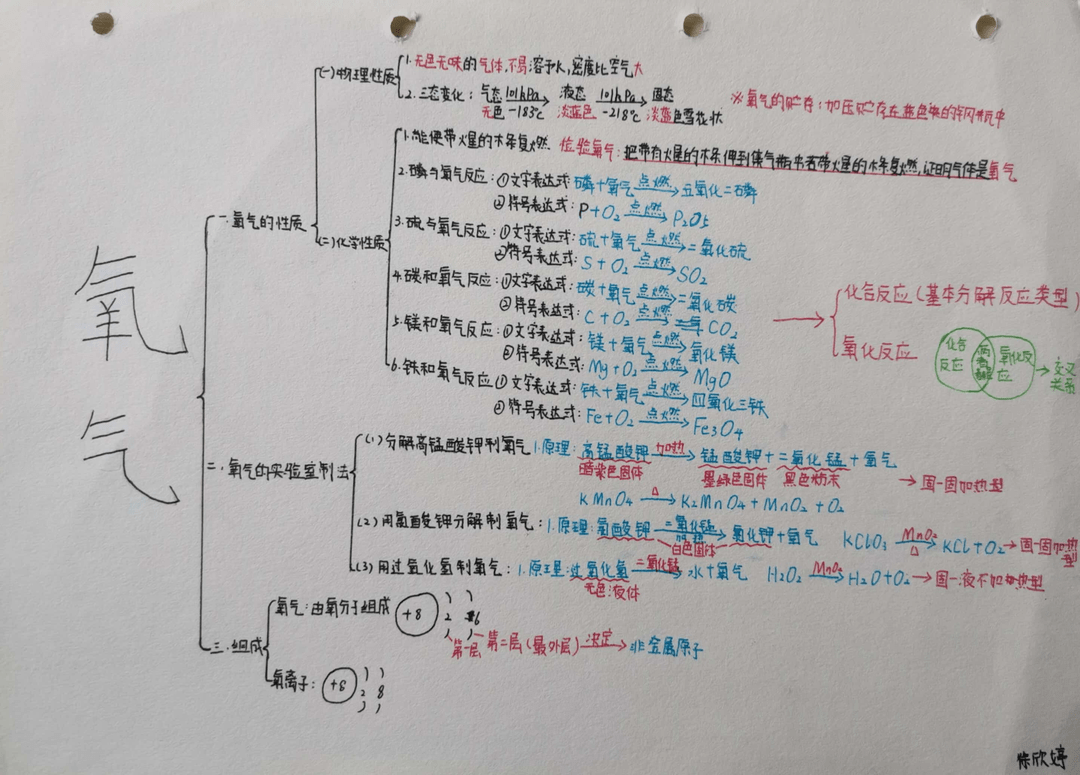 氧气
一.氧气的性质
(一)物理性质
1.无色无味的气体,不易溶于水,密度比空气大
2.三态变化:气态 101hPa 液态 101hPa 固态
无色 -183℃ 淡蓝色 -218℃ 淡蓝色雪花状
※氧气的贮存:加压贮存在蓝色的钢瓶中
(二)化学性质
1.能使带火星的木条复燃 检验氧气:把带有火星的木条伸到集气瓶中若带火星的木条复燃,证明气体是氧气
2.磷与氧气反应:①文字表达式:磷+氧气 点燃→ 五氧化二磷
②符号表达式:P+O2 点燃→ P2O5
3.硫与氧气反应:①文字表达式:硫+氧气 点燃→ 二氧化硫
②符号表达式:S+O2 点燃→ SO2
4.碳和氧气反应:①文字表达式:碳+氧气 点燃→ 二氧化碳
②符号表达式:C+O2 点燃→ CO2
5.镁和氧气反应:①文字表达式:镁+氧气 点燃→ 氧化镁
②符号表达式:Mg+O2 点燃→ MgO
6.铁和氧气反应①文字表达式:铁+氧气 点燃→ 四氧化三铁
②符号表达式:Fe+O2 点燃→ Fe3O4
→ 化合反应(基本分解反应类型)
氧化反应
化合反应 氧化反应 →交叉关系
二.氧气的实验室制法
(1)分解高锰酸钾制氧气 1.原理:高锰酸钾 加热→ 锰酸钾+二氧化锰+氧气
暗紫色固体 墨绿色固体 黑色粉末 →固-固加热型
KMnO4 △→ K2MnO4+MnO2+O2
(2)用氯酸钾分解制氧气:1.原理:氯酸钾 二氧化锰 加热→ 氯化钾+氧气 KClO3 MnO2 △→ KCl+O2→固-固加热型
白色固体
(3)用过氧化氢制氧气:1.原理:过氧化氢 二氧化锰→ 水+氧气 H2O2 MnO2→ H2O+O2→固-液不加热型
无色液体
三.组成
氧气:由氧分子组成 +8 2 6
第一层 第二层(最外层) 决定→ 非金属原子
氧离子: +8 2 8
徐欣婷